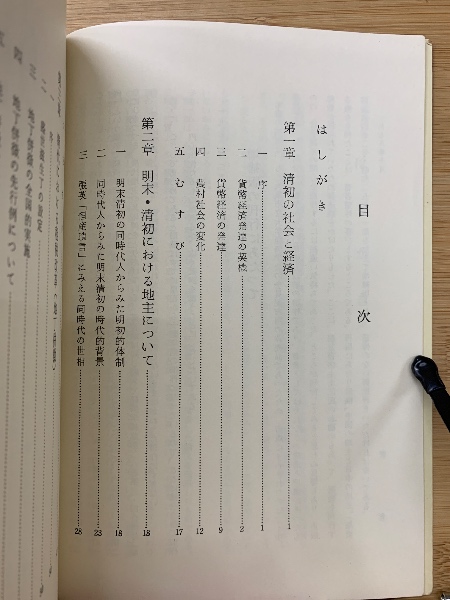 目次
はしがき
第一章 清初の社会と経済 1
一 序 1
二 貨幣経済発達の契機 2
三 貨幣経済の発達 9
四 農村社会の変化 12
五 むすび 17
第二章 明末・清初における地主について 18
一 明末清初の同時代人からみた明初的体制 18
二 同時代人からみた明末清初の時代的背景 23
三 張英「恒産瑣言」にみえる同時代の世相 28
地丁併徴の全国的実施
地丁併徴の先行例について